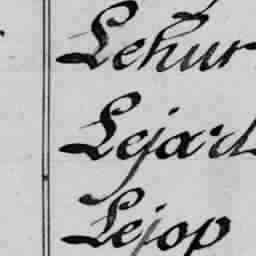 Lehur
Lejard
Lejop